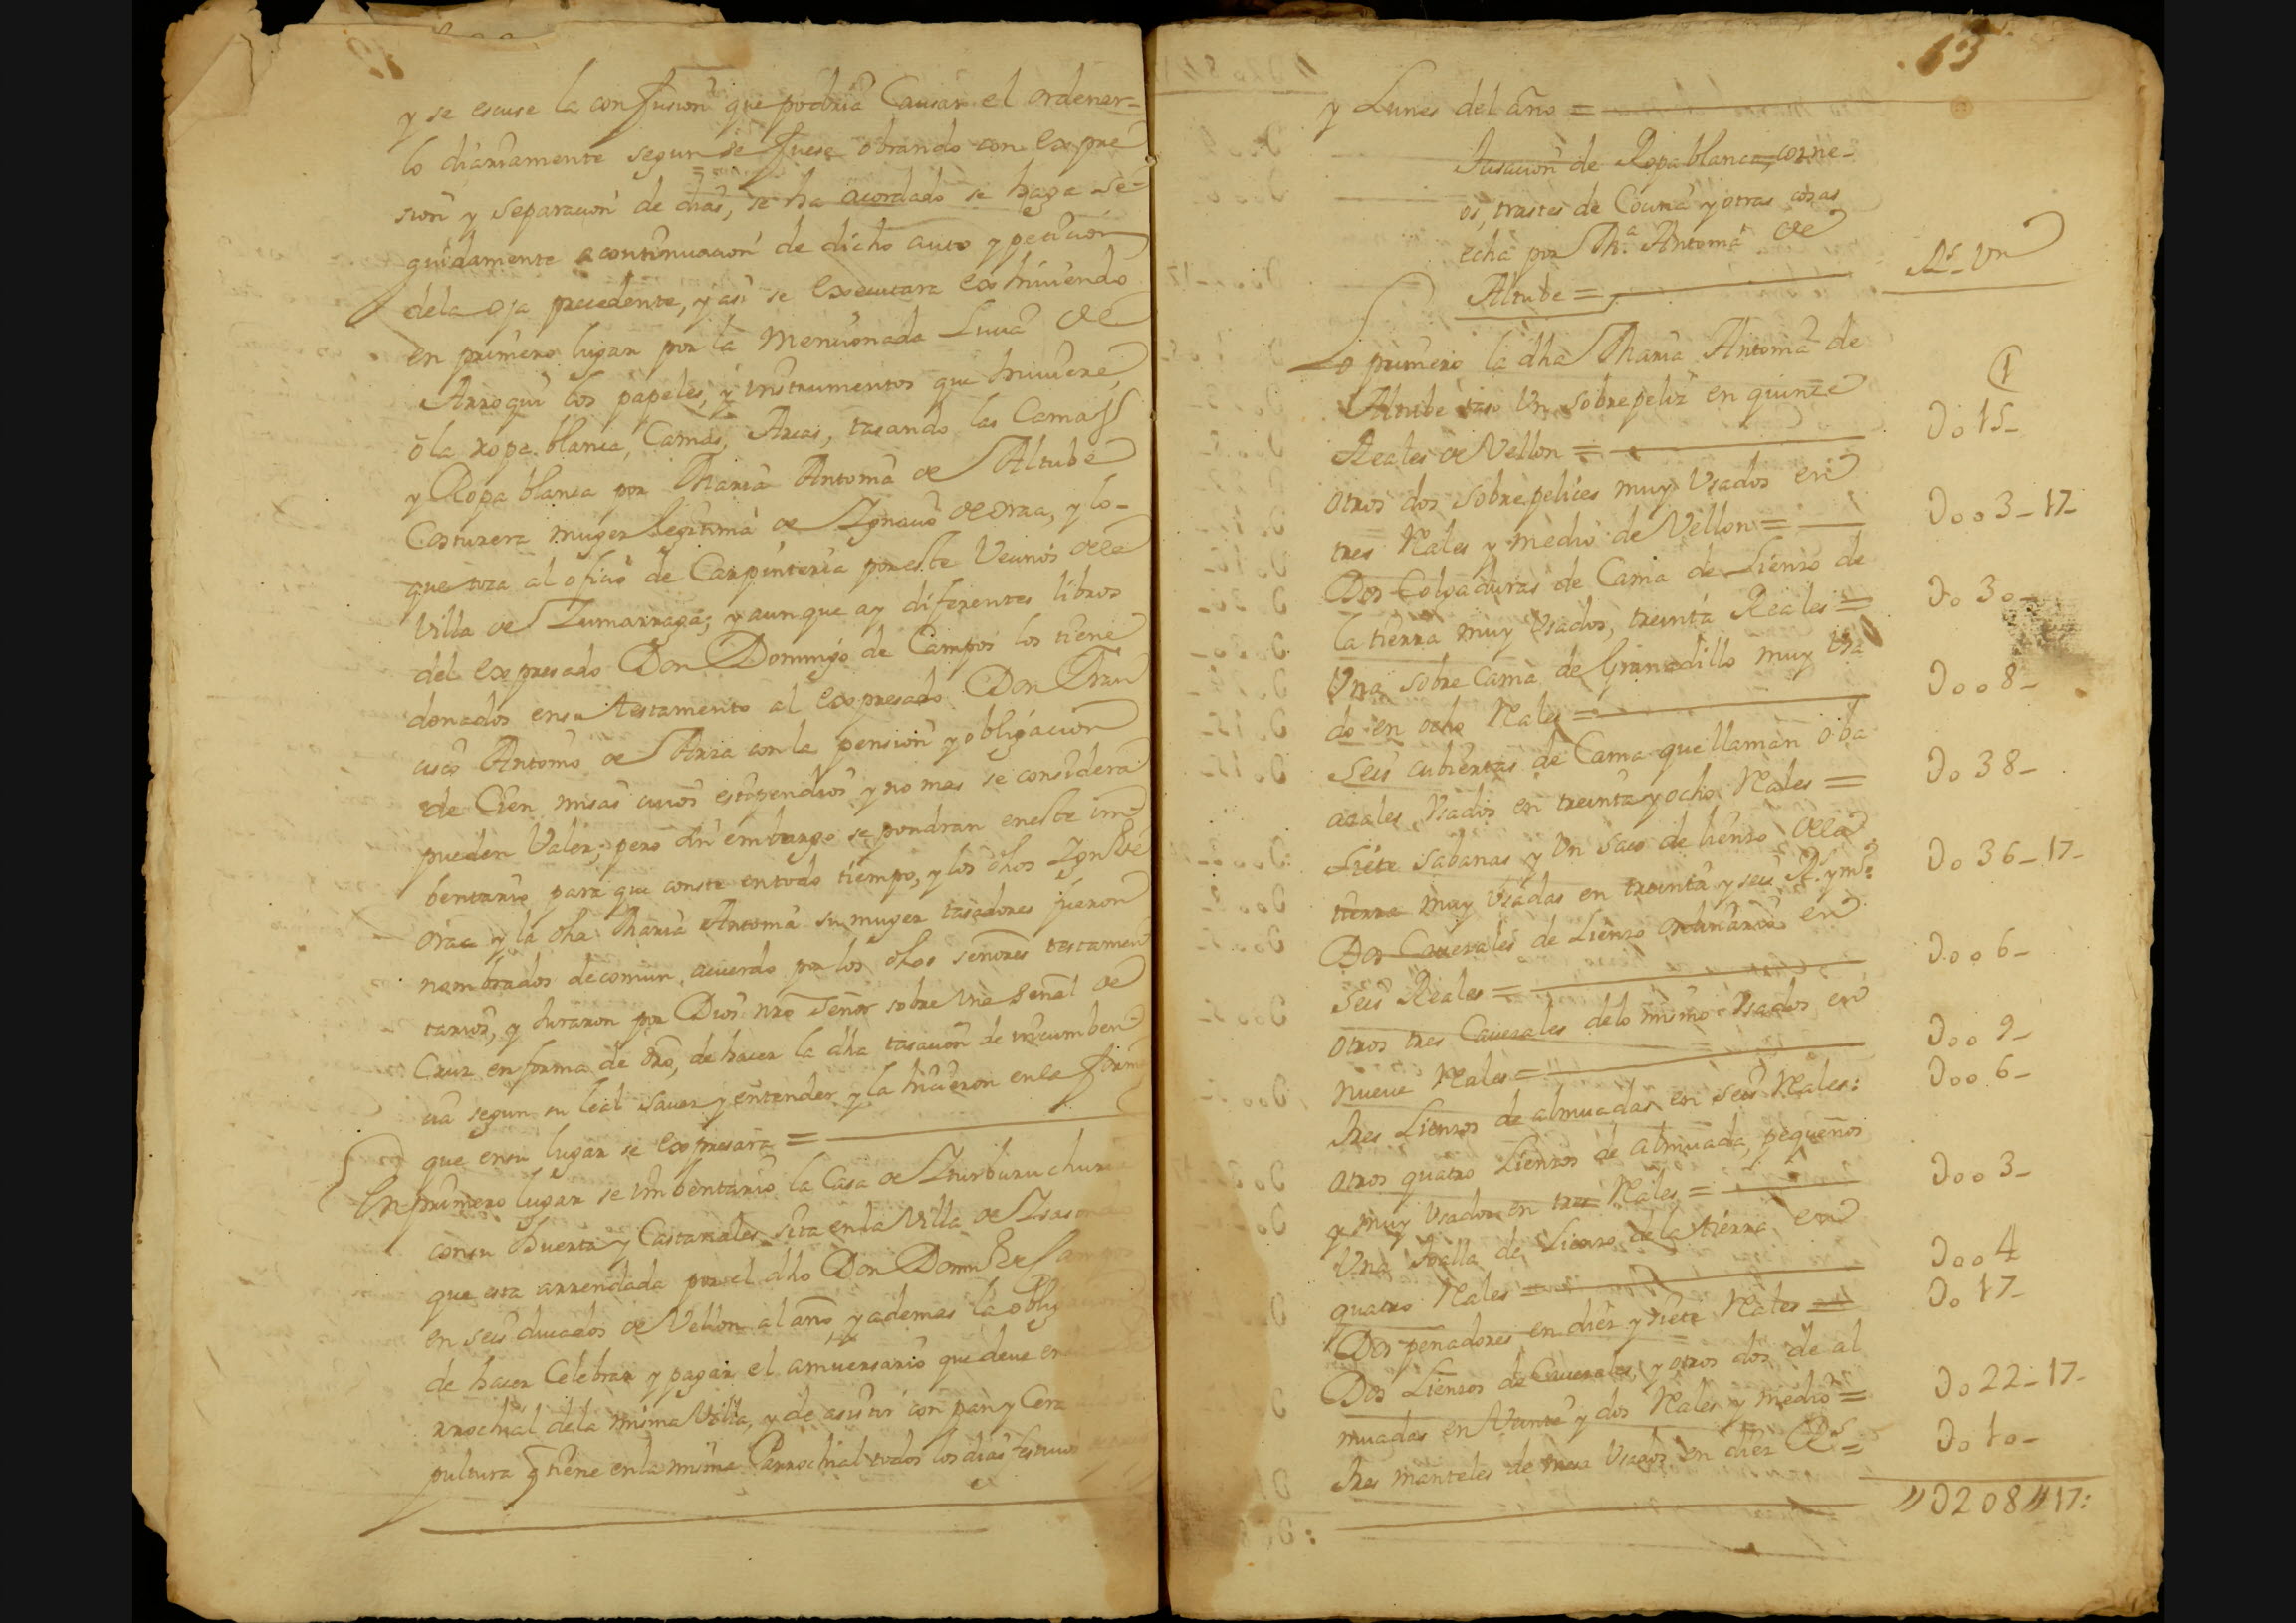 y se escuse la confusion que podria Causar el ordenar-
lo diariamente segun se fuese obrando con expre
sion y separacion de dias, se ha acordado se haga se-
guidamente a continuacion de dicho auto y peticion
dela oja precedente, y asi se executara exhiviendo
en primero lugar por la mencionada Lucia de
Arroqui los papeles, y instrumentos que huviere,
o la ropa blanca, Camas, Arcas, tasando las Camas
y Ropa blanca por Maria Antonia de Altube
Costurera muger legitima de Ignacio de Oraa, y lo-
que toca al oficio de Carpinteria por este Vecinos dela
Villa de Zumarraga; y aunque ay diferentes libros
del expresado Don Domingo de Campos los tiene
donados en su testamento al expresado Don Fran
cisco Antonio de Arza con la pension y obligacion
de Cien misas cuios estipendios y no mas se considera
pueden Valer; pero sin embargo se pondran en este im
bentario para que conste en todo tiempo, y los dhos Ign de
Oraa y la dha Maria Antonia su muger tasadores fueron
nombrados de comun acuerdo por los dhos señores testamen
tarios, y juraron por Dios nro Señor sobre Una Señal de
Cruz en forma de dro, de hacer la dha tasacion de incumben
cia segun su leal saver y entender y la hicieron en la forma
que en su lugar se expresara =
En primero lugar se imbentario la Casa de
con su Huerta y Castañales sita en la Villa de
que esta arrendada por el dho Don Domi de Campos
en seis ducados de Vellon al año, y ademas la oblig
de hacer Celebrar y pagar el aniversario que deve en
rrochial dela misma Villa, y de asistir con pan y Cera
pultura q tiene en la misma Parrochial todos los dias festivos
13
y Lunes del año =
Tasacion de Ropa blanca, cornie-
os, trastes de Cocina y otras cosas
echa por M.a Antonia de
Altube =
Rs. Vn
Lo primero la dha Maria Antonia de
Altube taso Un sobrepeliz en quinze
Reales de Vellon =
D o 15-
otros dos sobrepelices muy Usados en
tres Rales y medio de Vellon =
D o o 3-17-
Dos Colgaduras de Cama de Lienzo de
la tierra muy Usados, treinta Reales =
D o 3 o-
Una sobre Cama de Granadillo muy Usa
do en ocho Rales =
D o o 8-
Seis cubiertas de Cama que llaman oba
azales Usados en treinta y ocho Rales =
D o 38-
Siete sabanas y Un saco de lienzo dela
tierra muy Usadas en treinta y seis Rs. y m.o
D o 36-17-
Dos Cavezales de Lienzo ordinario en
Seis Reales =
D o o 6-
otros tres Cavezales delo mismo Usados en
nueve Rales =
D o o 9-
tres Lienzos de almuadas en seis Rales:
D o o 6-
otros quatro Lienzos de almuada, pequeños
y muy Usados en tres Rales =
D o o 3-
Una toalla de Lienzo dela tierra en
quatro Rales =
D o o 4
Dos penadores en diez y siete Rales =
D o 17-
Dos Lienzos de Cavezales, y otros dos de al
muadas en Veinte y dos Rales y medio =
D o 22-17-
tres manteles de mesa Usados en diez Rs =
D o 1 o-
//D208//17: